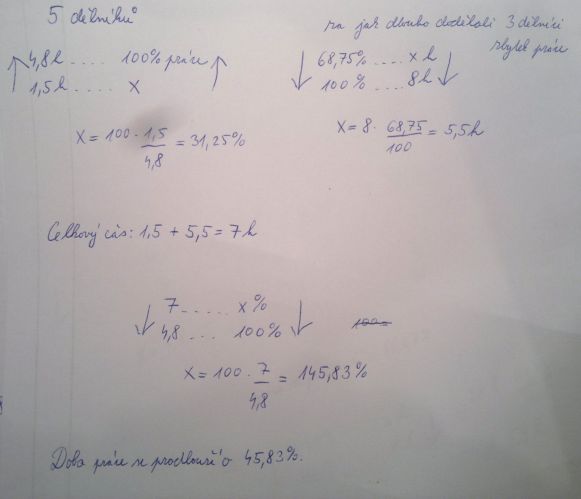 5 dělníků
4,8h .... 100% práce
1,5h ..... x
x = 100 · 1,5/4,8 = 31,25%
za jak dlouho dodělali 3 dělníci
zbytek práce
68,75% .... x h
100% .... 8h
x = 8 · 68,75/100 = 5,5h
Celkový čas: 1,5 + 5,5 = 7 h
7 ..... x%
4,8 ... 100%
x = 100 · 7/4,8 = 145,83%
Doba práce se prodlouží o 45,83%.